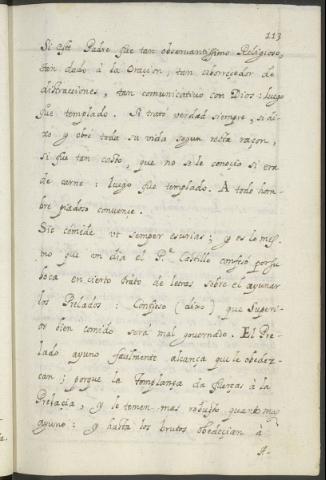 113
Si este Padre fue tan observantissimo Religioso,
tan dado à la Oracion; tan aborrecedor de
distracciones, tan comunicativo con Dios: luego
fue templado. Si trato verdad siempre, si di-
xo y obrò toda su vida segun recta razon,
si fue tan casto, que no se le conocio si era
de carne: luego fue templado. A todo hom-
bre piadoso convence.
Sic comede ut semper esurias; y es lo mes-
mo que un dia el P.e Castillo confesò por su
boca en cierto trato de letras sobre el ayunar
los Prelados: Confieso (dixo) que Superi-
or bien comido serà mal governado. El Pre-
lado ayuno facilmente alcança que le obedez-
can; porque la Templança da fuerças à la
Prelaçia, y le temen mas robusto quanto mas
ayuno: y hasta los brutos obedeçian à
A-